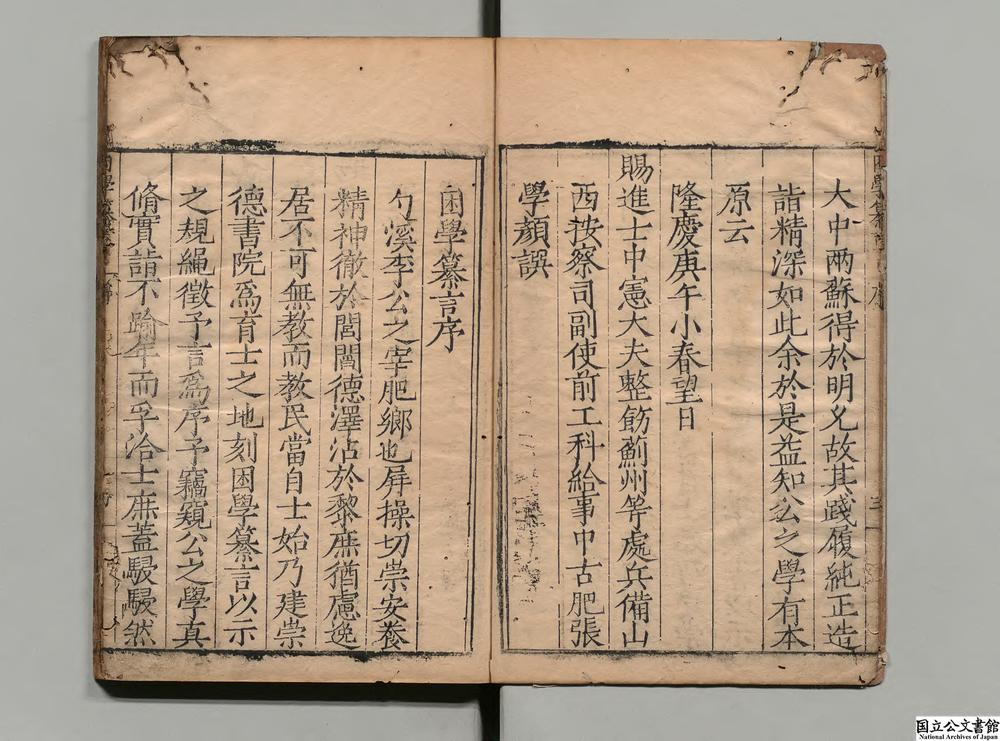 大中兩蘇得於明允故其踐履純正造
詣精深如此余於是益知公之學有本
原云
隆慶庚午小春望日
賜進士中憲大夫整飭薊州等處兵備山
西按察司副使前工科給事中古肥張
學顏誤
困學纂言序
勺溪李公之宰肥鄉也屏操切崇安養
精神徹於閭閻德澤沾於黎庶猶慮逸
居不可無教而教民當自士始乃建崇
德書院爲育士之地刻困學纂言以示
之規繩徵予言爲序予竊窺公之學真
脩實詣不踰年而孚洽士庶蓋駸駸然
国立公文書館
National Archives of Japan